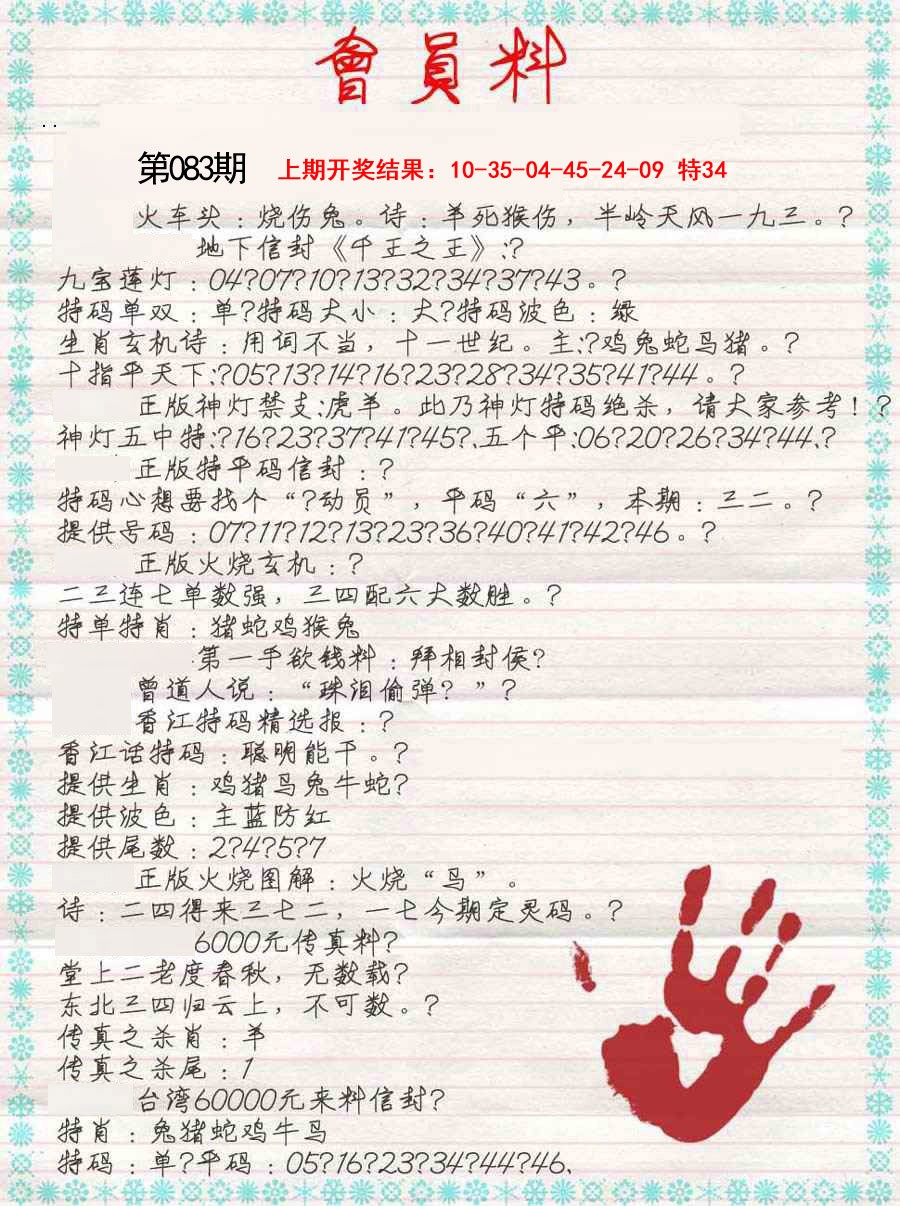 會員料
..
第083期 上期开奖结果：10-35-04-45-24-09 特34
火车头：烧伤兔。诗：羊死猴伤，半岭天风一九三。?
地下信封《千王之王》:?
九宝莲灯：04?07?10?13?32?34?37?43。?
特码单双：单?特码大小：大?特码波色：绿
生肖玄机诗：用词不当，十一世纪。主:?鸡兔蛇马猪。?
十指平天下:?05?13?14?16?23?28?34?35?41?44。?
正版神灯禁支:虎羊。此乃神灯特码绝杀，请大家参考！?
神灯五中特:?16?23?37?41?45?、五个平:06?20?26?34?44、?
正版特平码信封：?
特码心想要找个“?动员”，平码“六”，本期：三二。?
提供号码：07?11?12?13?23?36?40?41?42?46。?
正版火烧玄机：?
二三连七单数强，三四配六大数胜。?
特单特肖：猪蛇鸡猴兔
第一手欲钱料：拜相封侯?
曾道人说：“珠泪偷弹？”?
香江特码精选报：?
香江话特码：聪明能干。?
提供生肖：鸡猪马兔牛蛇?
提供波色：主蓝防红
提供尾数：2?4?5?7
正版火烧图解：火烧“鸟”。
诗：二四得来三七二，一七今期定灵码。?
6000元传真料?
堂上二老度春秋，无数载?
东北三四归云上，不可数。?
传真之杀肖：羊
传真之杀尾：1
台湾60000元来料信封?
特肖：兔猪蛇鸡牛马
特码：单?平码：05?16?23?34?44?46、